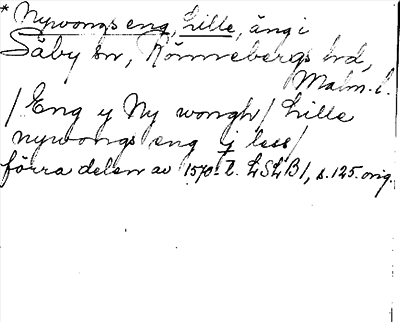 * Nywongs eng, Lille, äng i
Såby sn, Rönnebergs hd,
Malm. l.
/ Eng y Ny wongh / Lille
nywongs eng y less /
förra delen av 1570-t. LSLB 1, s. 125. orig.